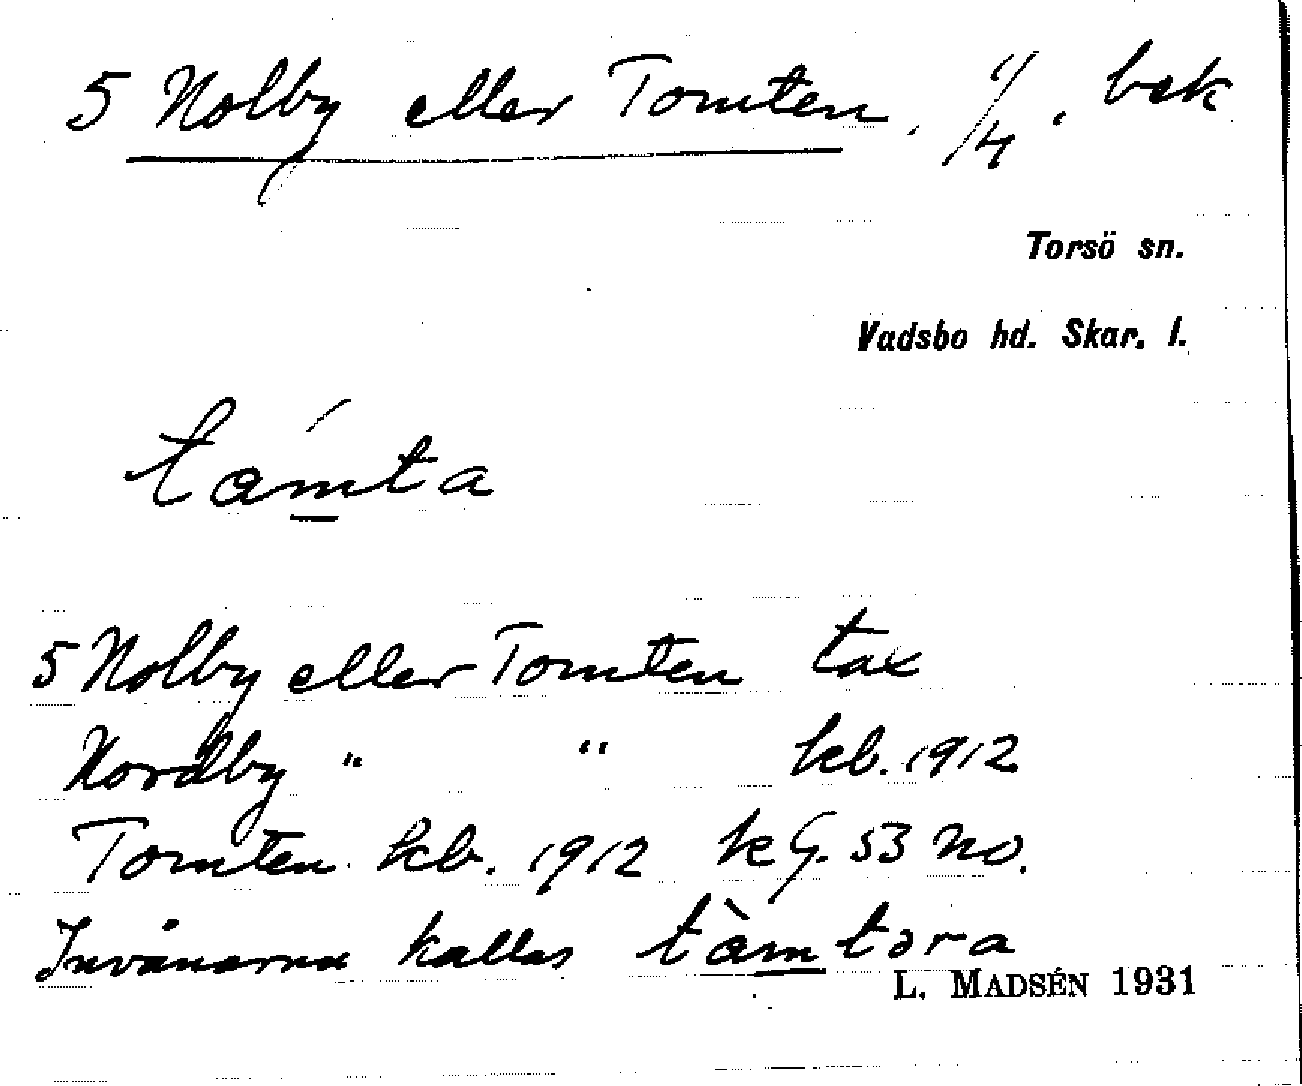 5 Nolby eller Tomten. 1/4. bek
Torsö sn.
Vadsbo hd. Skar. l.
tám̲ta
5 Nolby eller Tomten tax
Nordby " " kb. 1912
Tomten kb. 1912 k G. 53 no.
Invånarna kallas tàm̲tɔra
L. MADSÉN 1931